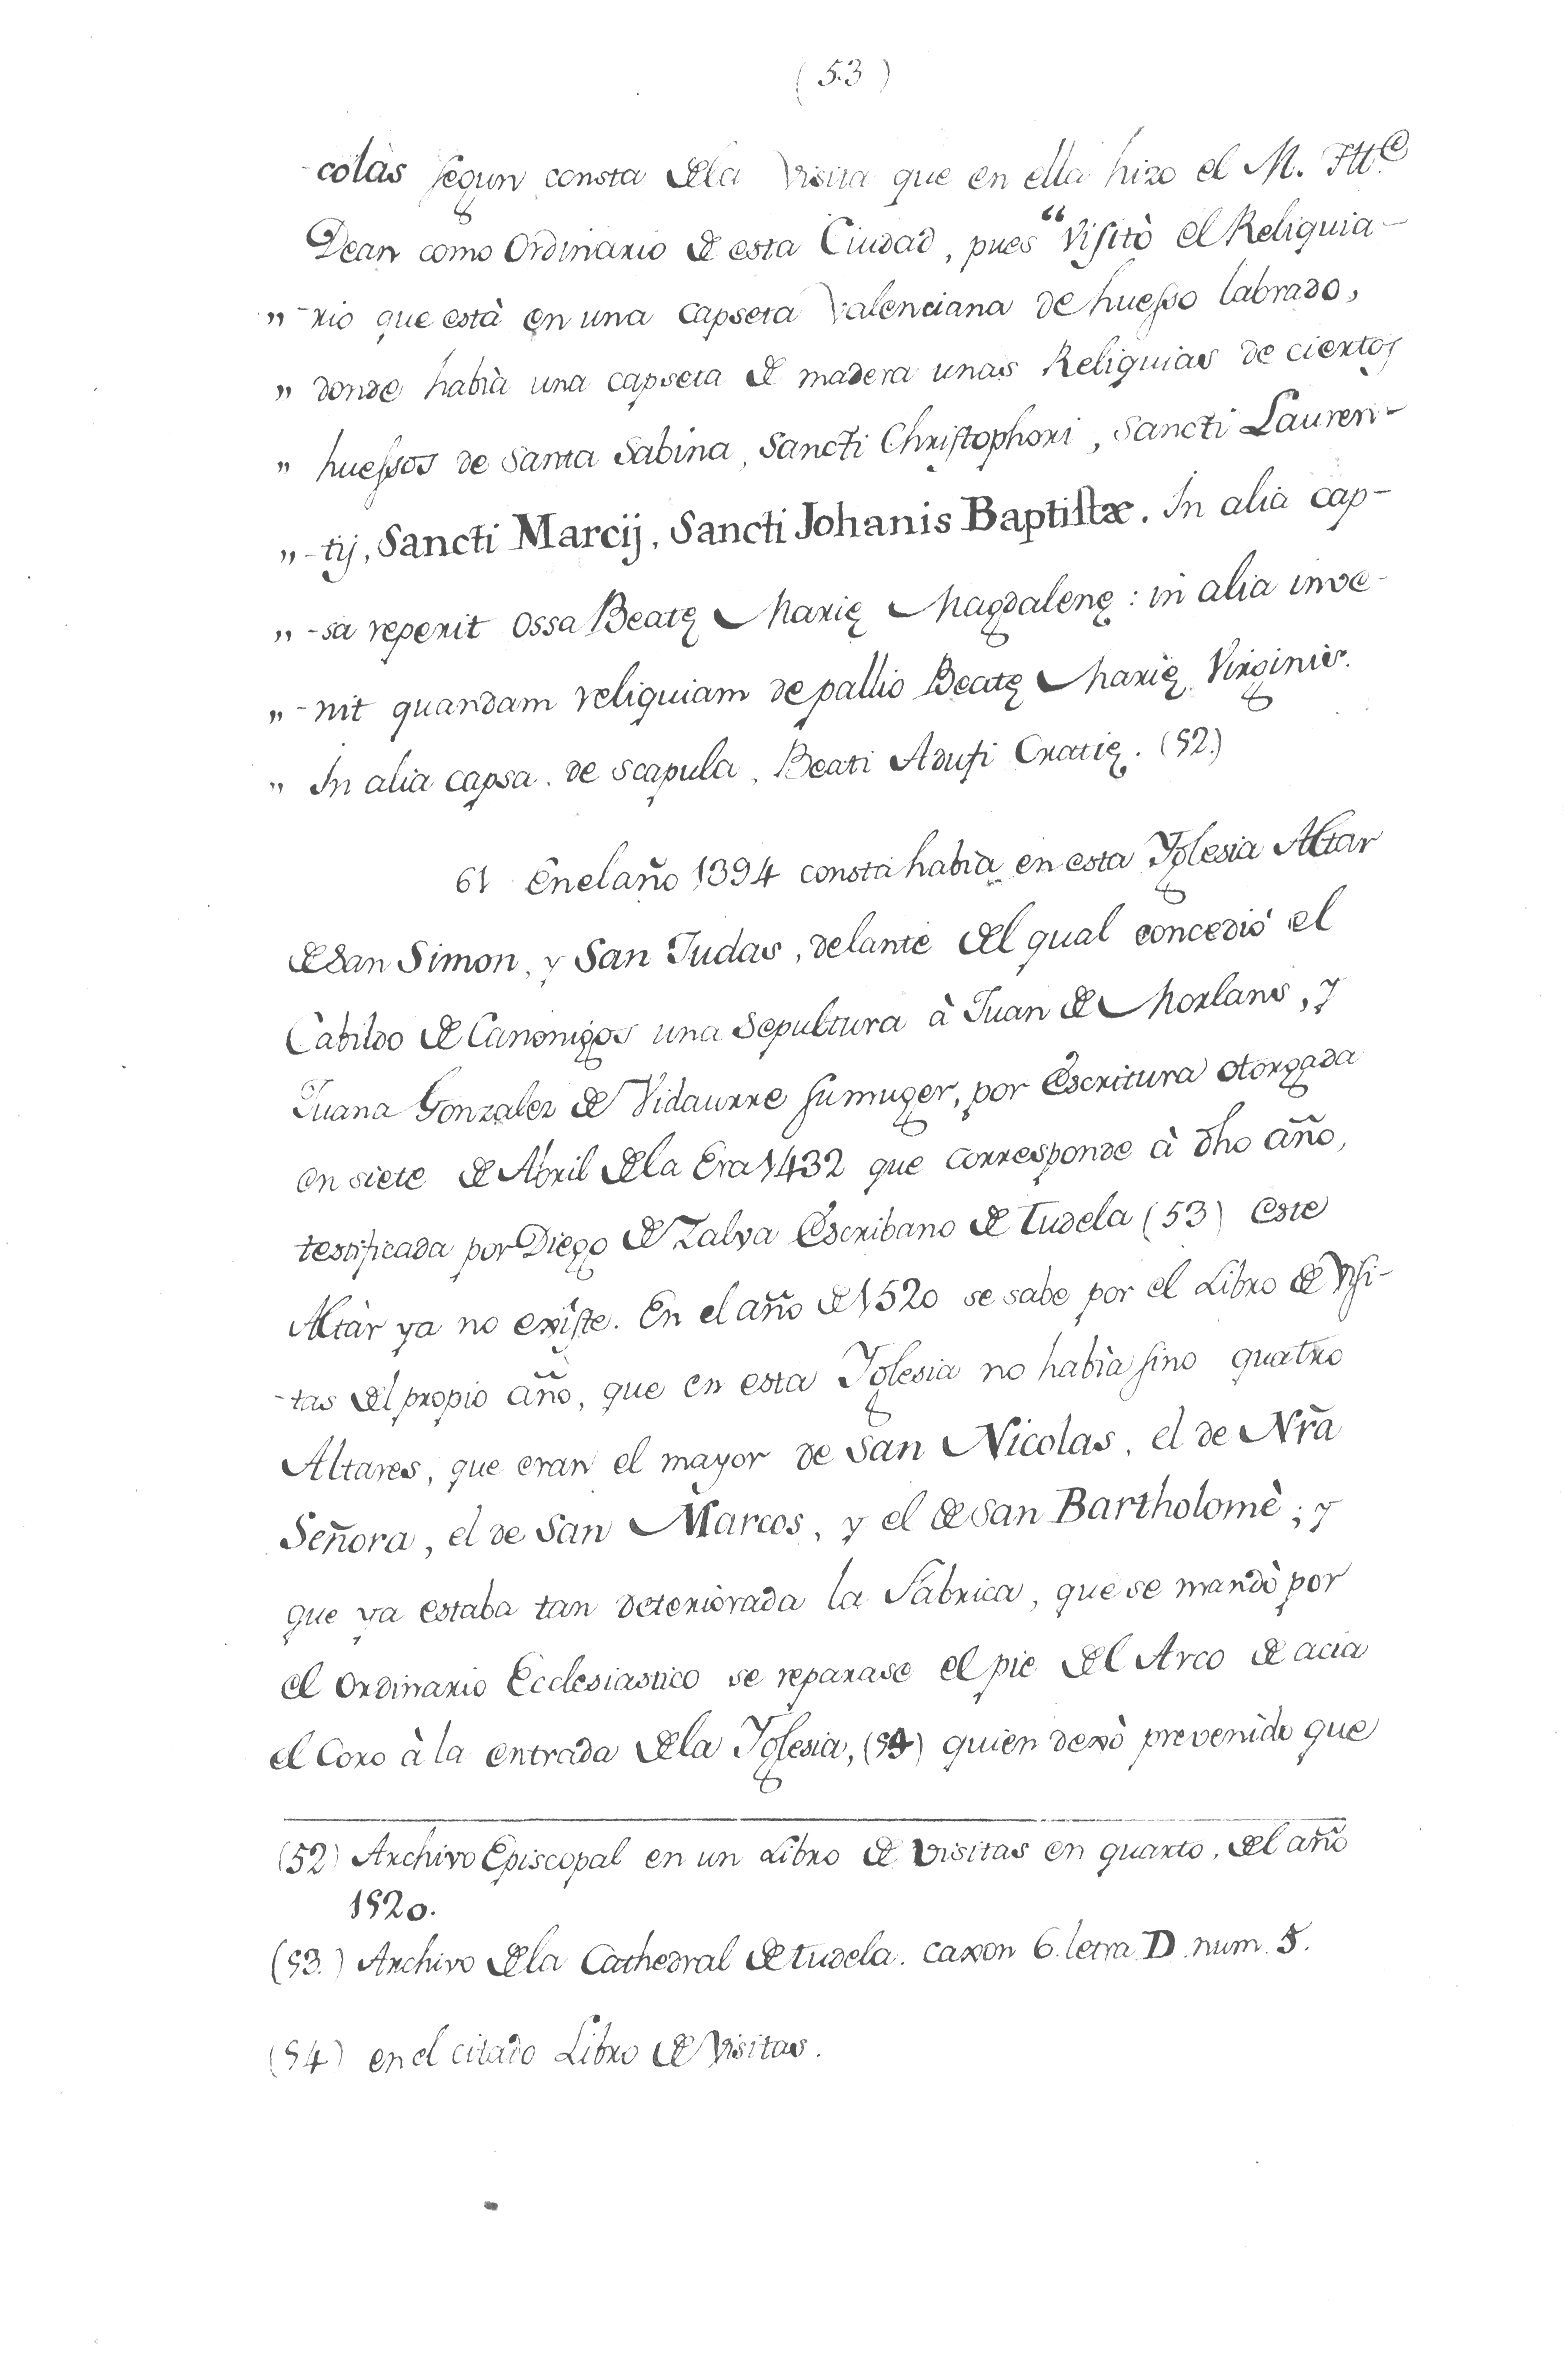 (53)
-colàs segun consta de la Visita que en ella hizo el M. Itte
Dean como Ordinario de esta Ciudad, pues “Visitò el Reliquia-
„ -rio que està en una capseta Valenciana de huesso labrado,
„ donde habia una capseta de madera unas Reliquias de ciertos
„ huessos de Santa Sabina, Sancti Christophori, Sancti Lauren-
„ -tij, Sancti Marcij, Sancti Johanis Baptistæ. In alia cap-
„ -sa reperit ossa Beatę Marię Magdalenę: in alia inve-
„ -nit quandam reliquiam de pallio Beatę Marię Virginis.
„ In alia capsa. de scapula, Beati Adufi Cratię. (52.)
61 En el año 1394 consta habia en esta Yglesia Altar
de San Simon, y San Judas, delante del qual concediò el
Cabildo de Canonigos una Sepultura à Juan de Morlans, y
Juana Gonzalez de Vidaurre su muger, por Escritura otorgada
en siete de Abril de la Era 1432 que corresponde à dho año,
testificada por Diego de Zalva Escribano de Tudela (53) Este
Altàr ya no existe. En el año de 1520 se sabe por el Libro de Visi-
-tas del propio año, que en esta Yglesia no habia sino quatro
Altares, que eran el mayor de San Nicolas, el de Nr̃a
Señora, el de San Marcos, y el de San Bartholomè; y
que ya estaba tan deteriorada la Fabrica, que se mandò por
el Ordinario Ecclesiastico se reparase el pie del Arco de acia
el Coro à la entrada de la Yglesia, (54) quien dexò prevenido que
(52) Archivo Episcopal en un Libro de Visitas en quarto, del año
1520.
(53.) Archivo de la Cathedral de Tudela. caxon 6. letra D. num. 5.
(54) en el citado Libro de Visitas.